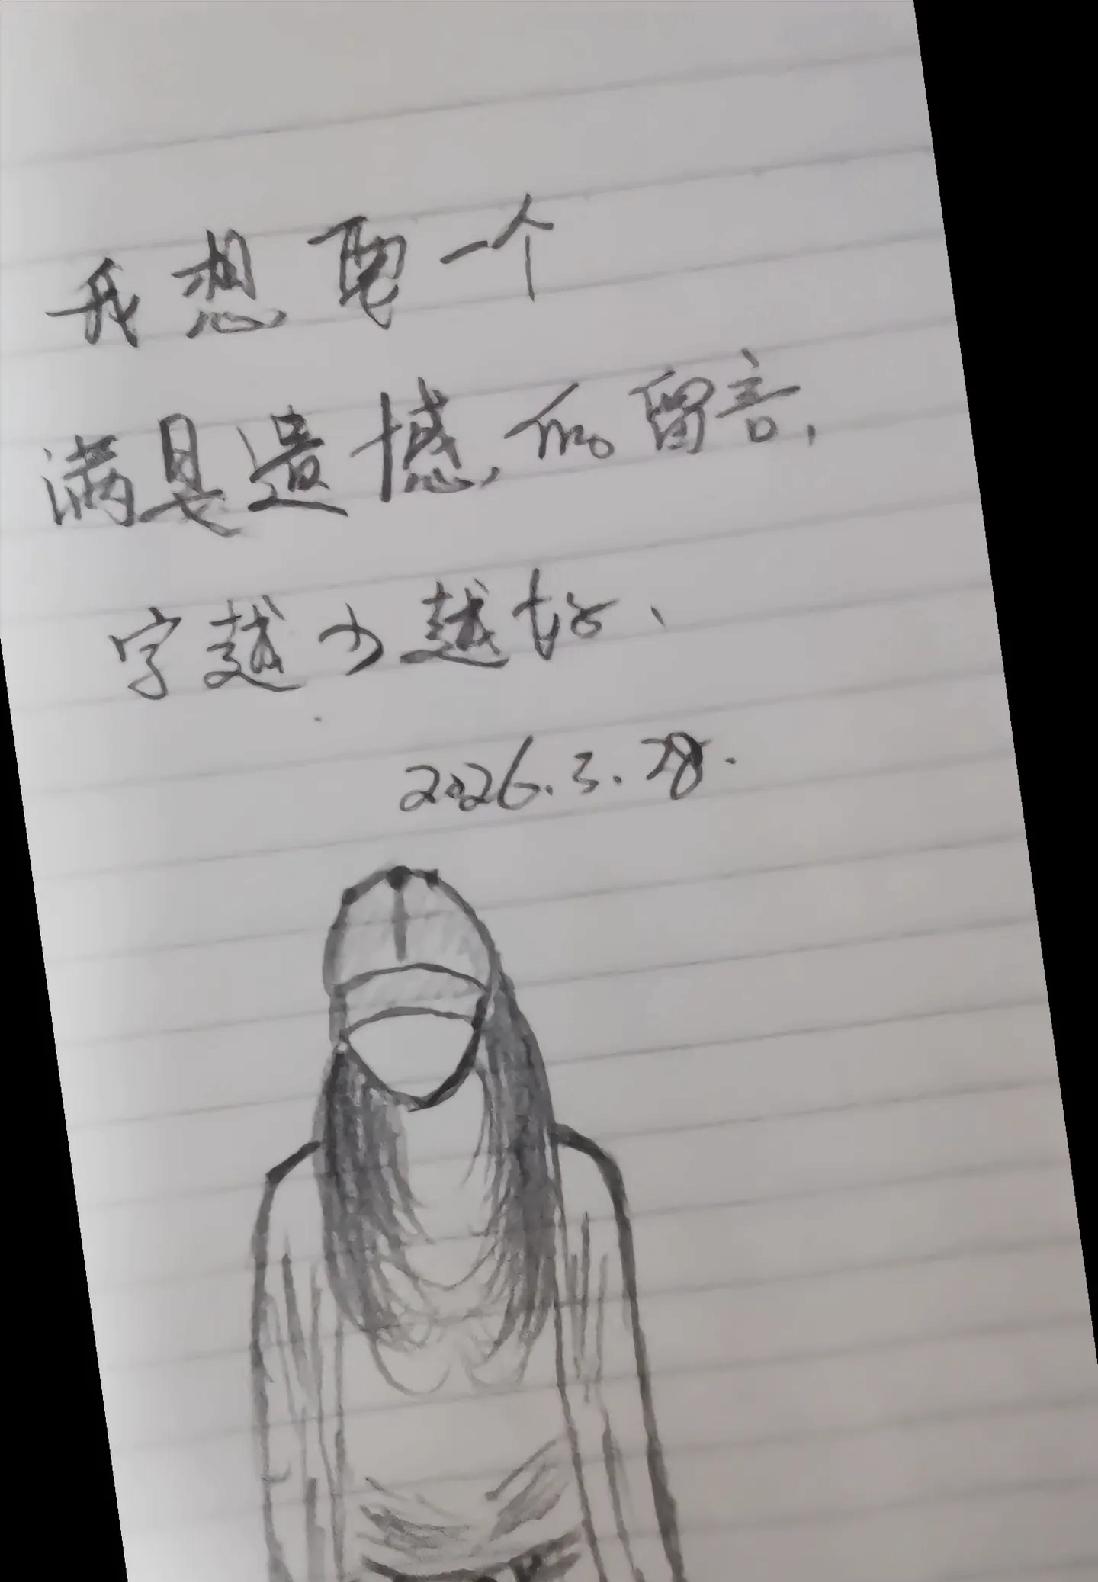 我想要一个
满是遗憾的留言,
字越少越好、
2026.3.28.